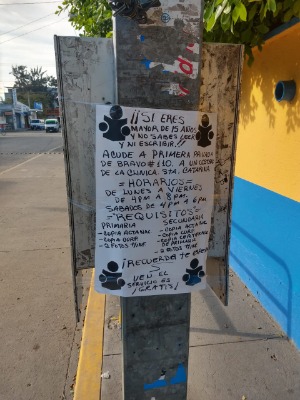 ¡¡¡SI ERES
MAYOR DE 15 AÑOS
Y NO SABES LEER
Y NI ESCRIBIR!!!
ACUDE A PRIMERA PRIVADA
DE BRAVO #10. A UN COSTADO
DE LA CLINICA STA. CATARINA
=HORARIOS=
DE LUNES A VIERNES
DE 4PM A 8 PM.
SABADOS DE 4PM A 6PM
="REQUISITOS"=
PRIMARIA
-COPIA ACTA NAC
-COPIA CURP
-2 FOTOS T/INF
SECUNDARIA
-COPIA ACTA NAC
-COPIA CURP
-COPIA CERTIFICADO
DE PRIMARIA
-2 FOTOS T/INF
¡RECUERDA TE
VEN EL
SERVICIO ES
¡GRATIS!